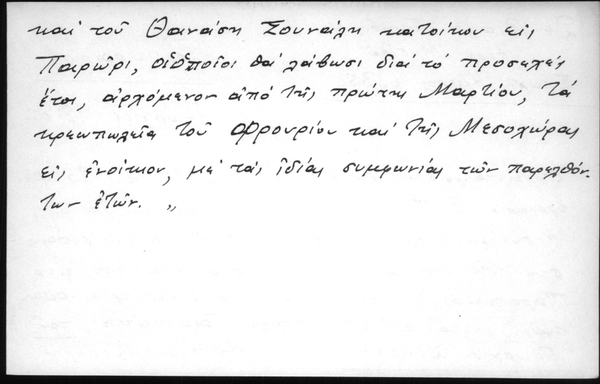 καί τοῦ Θανάση Σουνάλη κατοίκου εἰς
Παρῶρι, οἱ ὁποῖοι θά λάβωσι διά τό προσεχές
ἔτος, ἀρχόμενον ἀπό τῆς πρώτης Μαρτίου, τά
κρεωπωλεῖα τοῦ Φρουρίου καί τῆς Μεσοχώρας
εἰς ἐνοίκιον, μέ τάς ἰδίας συμφωνίας τῶν παρελθόν-
των ἐτῶν. „